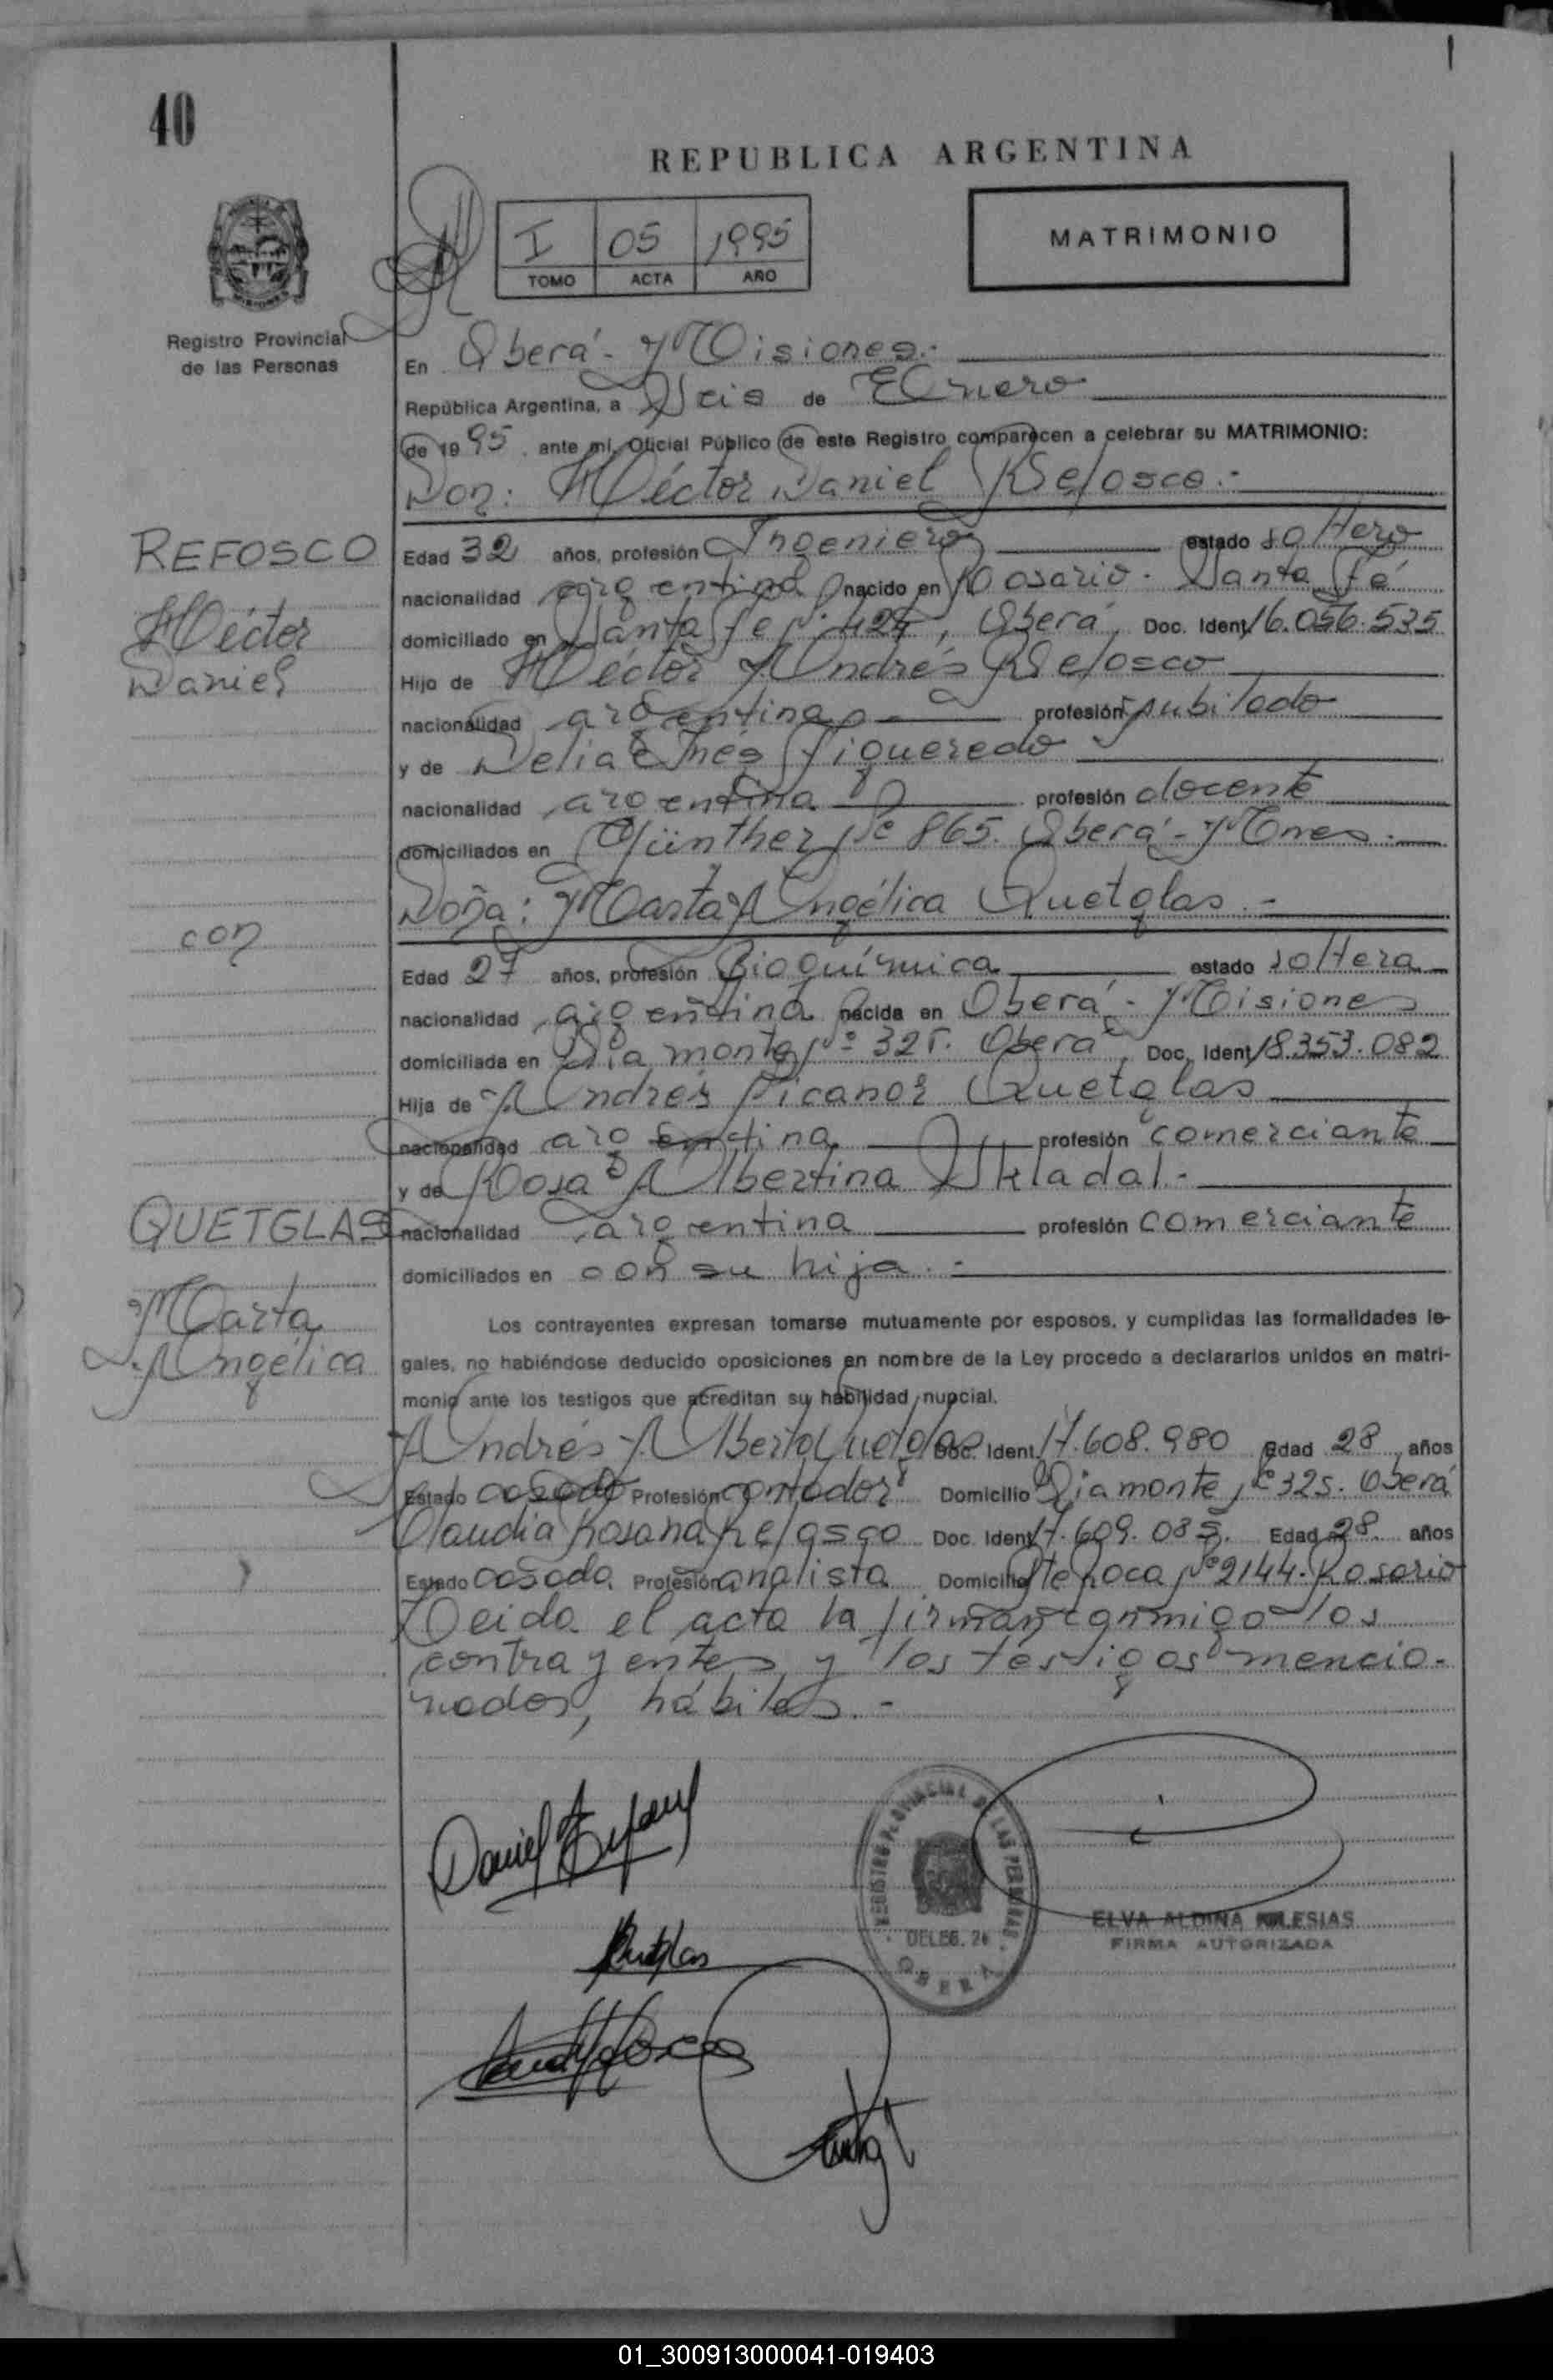 40
REPUBLICA ARGENTINA
I 05 1995
TOMO ACTA AÑO
MATRIMONIO
Registro Provincial
de las Personas
En Oberá - Misiones.-
República Argentina, a Seis de Enero
de 1995, ante mi, Oficial Público de este Registro comparecen a celebrar su MATRIMONIO:
Don: Héctor Daniel Refosco.-
REFOSCO
Héctor
Daniel
Edad 32 años, profesión Ingeniero estado soltero
nacionalidad argentina nacido en Rosario - Santa Fé
domiciliado en Santa Fe Nº 424, Oberá, Doc. Ident 16.056.535
Hijo de Héctor Andrés Refosco
nacionalidad argentina - profesión jubilado
y de Delia Inés Figueredo
nacionalidad argentina profesión docente
domiciliados en Günther Nº 865. Oberá - Mnes.-
Doña: Marta Angélica Quetglas.-
con
QUETGLAS
Marta
Angélica
Edad 27 años, profesión Bioquímica estado soltera
nacionalidad argentina nacida en Oberá - Misiones
domiciliada en Diamonte Nº 325. Oberá, Doc. Ident 18.353.082
Hija de Andrés Nicanor Quetglas
nacionalidad argentina profesión comerciante
y de Rosa Albertina Skladal.-
nacionalidad argentina profesión comerciante
domiciliados en con su hija.-
Los contrayentes expresan tomarse mutuamente por esposos, y cumplidas las formalidades le-
gales, no habiéndose deducido oposiciones en nombre de la Ley procedo a declararlos unidos en matri-
monio ante los testigos que acreditan su habilidad nupcial.
Andrés Alberto Quetglas Doc. Ident. 17.608.980 Edad 28 años
Estado casado Profesión contador Domicilio Diamonte Nº 325. Oberá
Claudia Rosana Refosco Doc. Ident 17.609.085. Edad 28. años
Estado casada. Profesión analista Domicilio Pte Roca Nº 2144. Rosario
Leida el acta la firman conmigo los
contrayentes y los testigos mencio-
nados, hábiles.-
Daniel
Quetglas
REGISTRO PROVINCIAL DE LAS PERSONAS
OBERA
ELVA ALDINA IGLESIAS
FIRMA AUTORIZADA
01_300913000041-019403